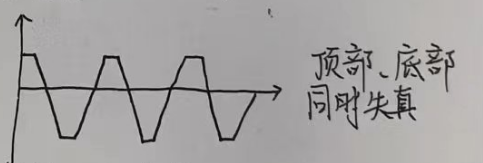 顶部、底部
同时失真